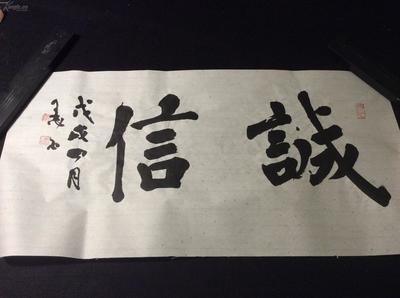 誠信
戊戌四月